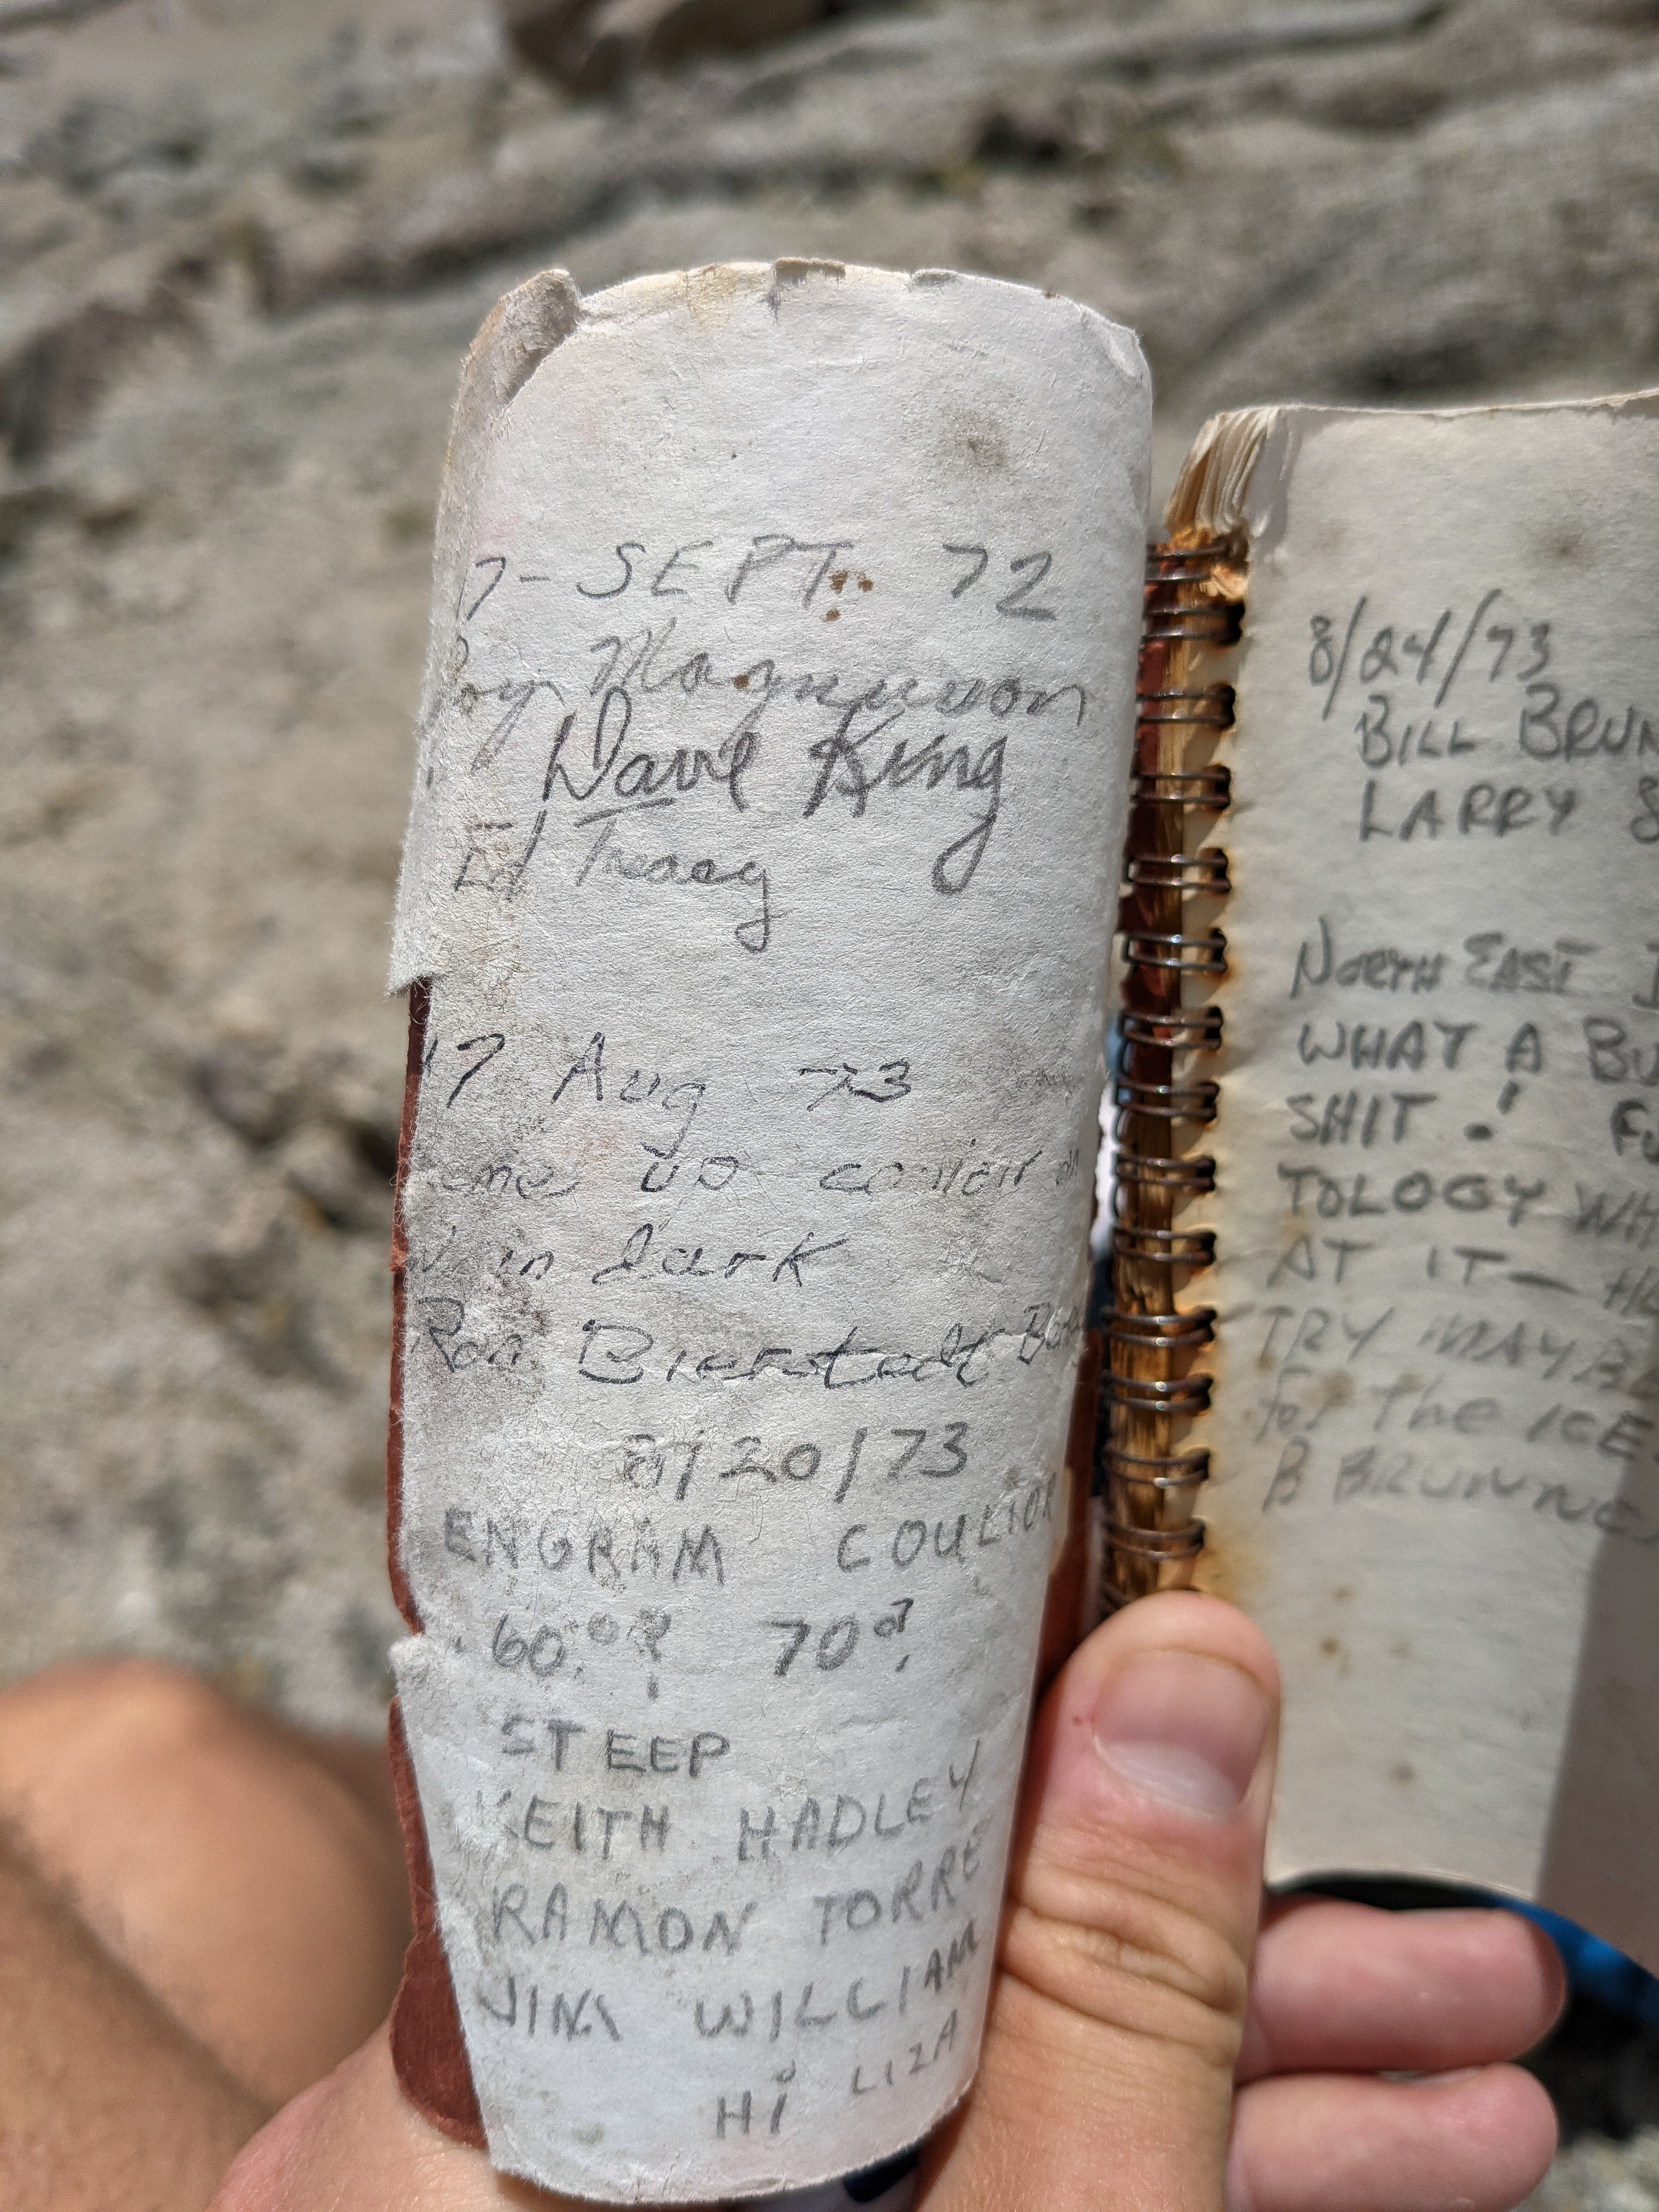 17- SEPT. 72
Roy Magnuson
Dave King
Ed Tracy
17 Aug 73
up couloir
in dark
Ron Bierstedt
8/20/73
ENGRAM COULIOR
60°? 70°?
STEEP
KEITH HADLEY
RAMON TORRE
JIM WILLIAM
HI LIZA
8/24/73
BILL BRUN
LARRY
NORTH EAST
WHAT A BU
SHIT! FU
TOLOGY WH
AT IT—
TRY MAYBE
for The ICE
B BRUNNE